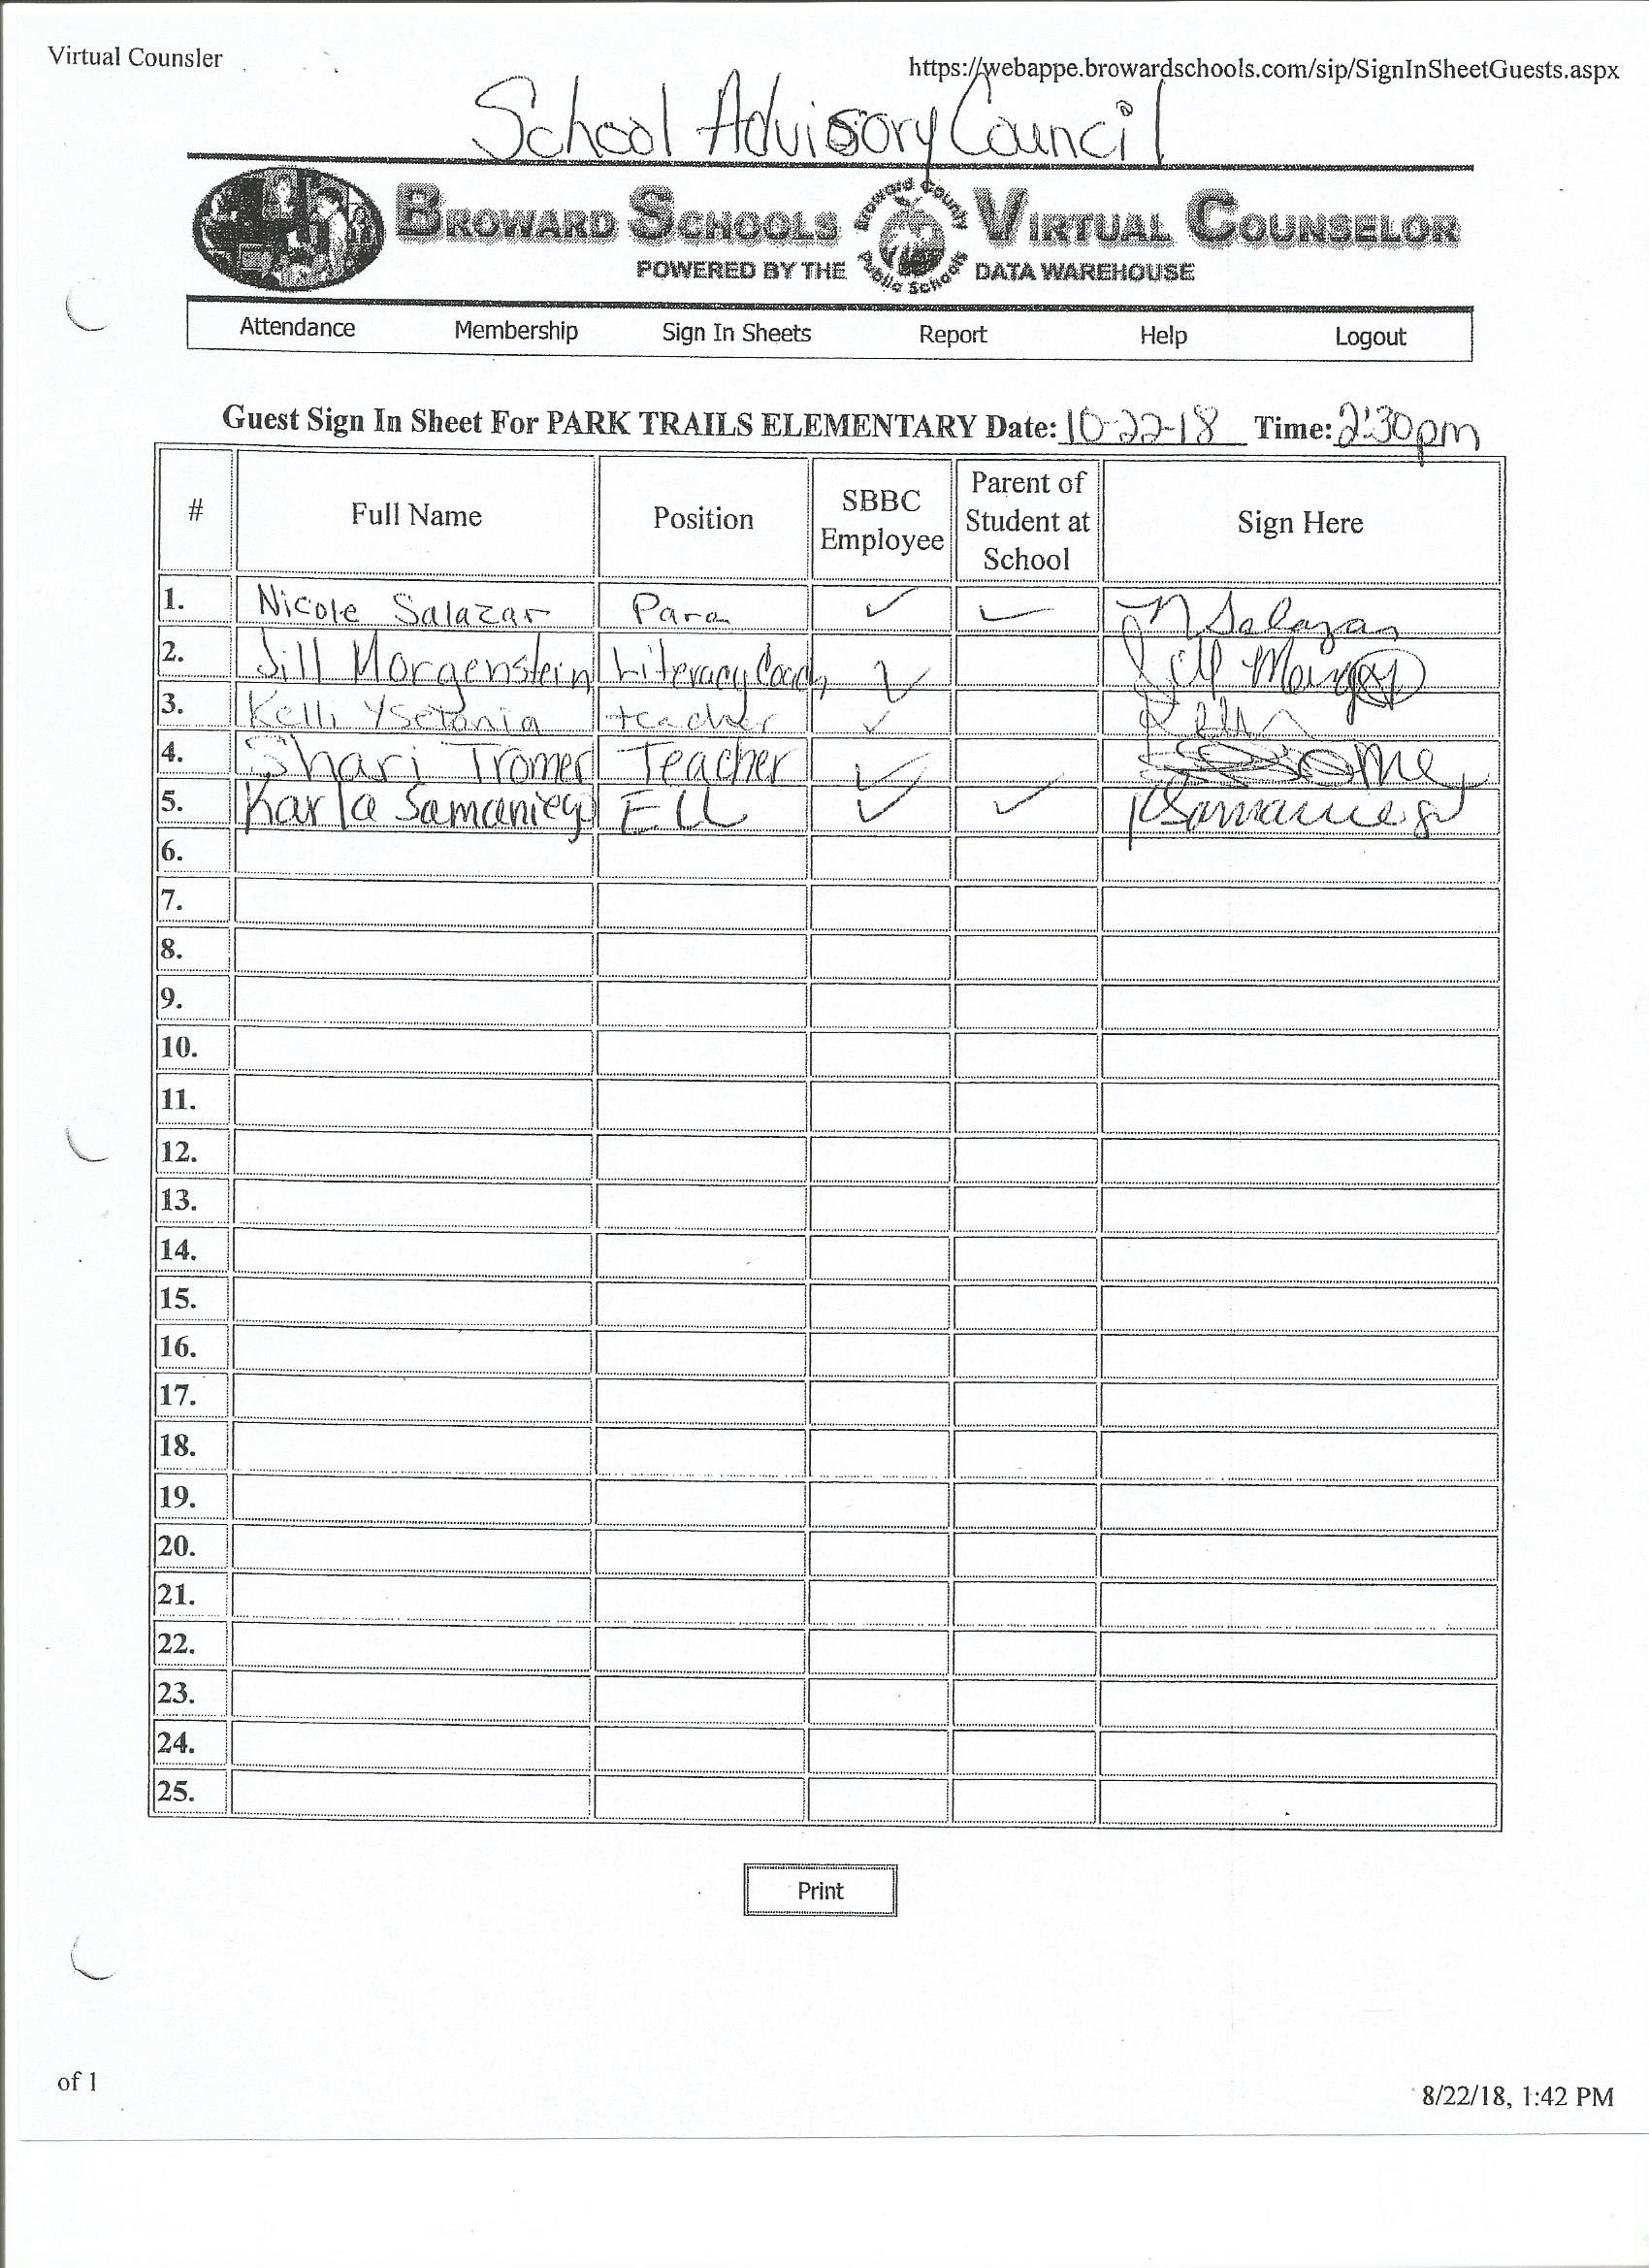 Virtual Counsler
https://webappe.browardschools.com/sip/SignInSheetGuests.aspx
School Advisory Council
BROWARD SCHOOLS VIRTUAL COUNSELOR
Broward County Public Schools
POWERED BY THE DATA WAREHOUSE
Attendance Membership Sign In Sheets Report Help Logout
Guest Sign In Sheet For PARK TRAILS ELEMENTARY Date: 10-22-18 Time: 2:30pm
# Full Name Position SBBC Employee Parent of Student at School Sign Here
1. Nicole Salazar Para ✓ ✓ N Salazar
2. Jill Morgenstein Literacy Coach ✓ Jill
3. Kelli teacher ✓
4. Shari Tromer Teacher ✓
5. Karla Samaniego ELL ✓ ✓ KSamaniego
6.
7.
8.
9.
10.
11.
12.
13.
14.
15.
16.
17.
18.
19.
20.
21.
22.
23.
24.
25.
Print
of 1
8/22/18, 1:42 PM